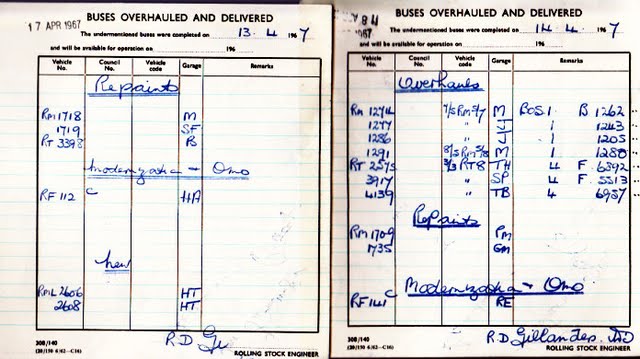 BUSES OVERHAULED AND DELIVERED
17 APR 1967
The undermentioned buses were completed on 13. 4 1967
and will be available for operation on 196
Vehicle No. Council No. Vehicle code Garage Remarks
Repaints
RM 1718 M
1719 SF
RT 3398 B
Modernization - Omo
RF 112 C HA
New
RML 2606 HT
2608 HT
R.D.
308/140
(20/150 6/62-C16)
ROLLING STOCK ENGINEER
BUSES OVERHAULED AND DELIVERED
The undermentioned buses were completed on 14. 4. 1967
and will be available for operation on 196
Vehicle No. Council No. Vehicle code Garage Remarks
Overhauls
RM 1274 M BOS.1 B 1262
1277 " J 1 1243
1286 " J 1 1205
1291 M 1 1280
RT 2575 TH 4 F 6392
3917 " SP 4 F 5513
4139 " TB 4 6957
Repaints
RM 1709 PM
1735 GM
Modernization - Omo
RF 141 C RE
R.D. Gillanders
308/140
(20/150 6/62-C16)
ROLLING STOCK ENGINEER